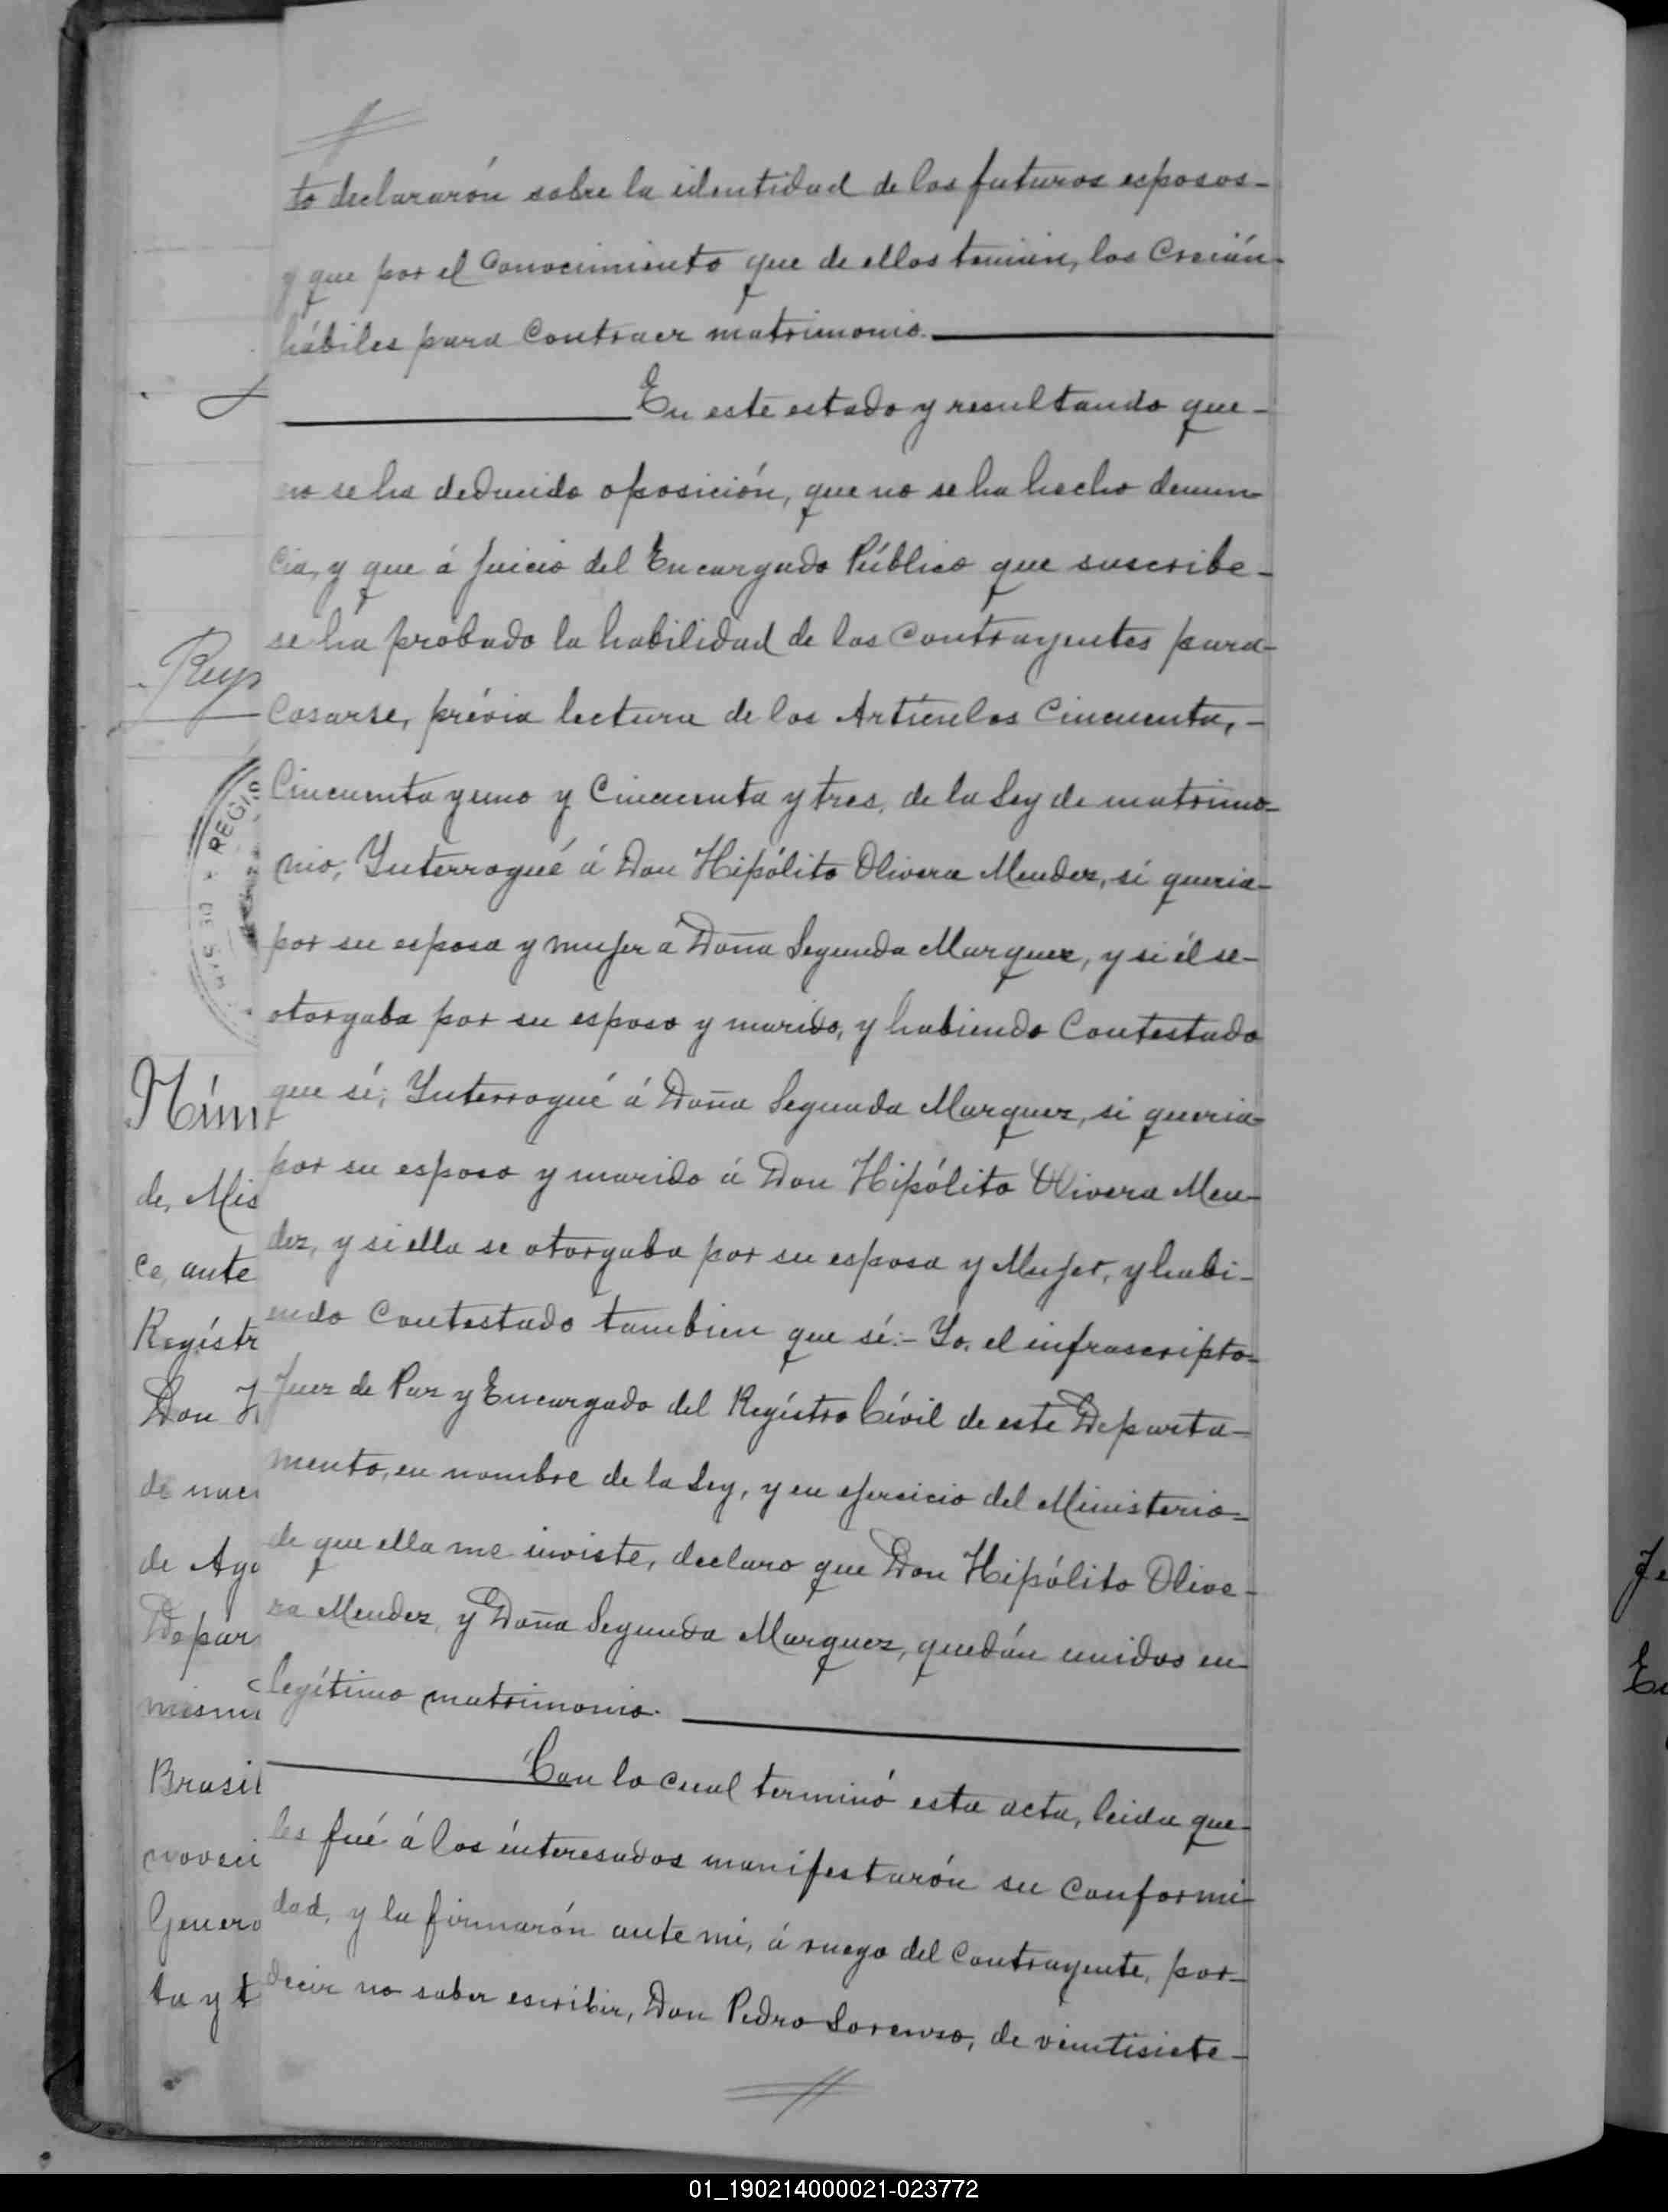 to declararón sobre la identidad de los futuros esposos-
y que por el Conocimiento que de ellos tenían, los Creían-
hábiles para Contraer matrimonio.
En este estado y resultando que-
no se ha deducido oposición, que no se ha hecho denun-
cia, y que á juicio del Encargado Público que suscribe-
se ha probado la habilidad de los Contrayentes para-
Casarse, prévia lectura de los Artículos Cincuenta,-
Cincuenta y uno y Cincuenta y tres, de la Ley de matrimo-
nio; Ynterrogué á Don Hipólito Olivera Mendez, si queria-
por su esposa y mujer a Doña Segunda Marquez, y si él se-
otorgaba por su esposo y marido, y habiendo Contestado
que sí; Ynterrogué á Doña Segunda Marquez, si queria-
por su esposo y marido á Don Hipólito Olivera Men-
dez, y si ella se otorgaba por su esposa y Mujer, y habi-
endo Contestado tambien que sí:- Yo, el infrascripto-
Juez de Paz y Encargado del Regístro Cívil de este Departa-
mento, en nombre de la Ley, y en ejercicio del Ministerio-
de que ella me inviste, declaro que Don Hipólito Olive-
ra Mendez, y Doña Segunda Marquez, quedán unidos en-
legítimo matrimonio.
Con lo cual terminó esta acta, leida que-
les fué á los ínteresados manifestarón su Conformi-
dad, y la firmarón ante mi, á ruego del Contrayente, por-
decir no saber escribir, Don Pedro Lorenzo, de veintisiete-
Rup
REGIS
Núm
de, Mis
ce, ante
Regístr
Don H
de nuev
de Ago
Depar
mismo
Brasil
noveci
Genero
ta y t
01_190214000021-023772